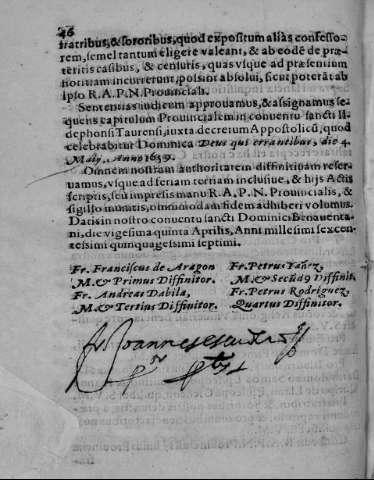 46
fratribus, & sororibus, quod expositum aliàs confesso-
rem, semel tantum eligere valeant, & ab eodē de præ-
teritis casibus, & censuris, quas vsque ad præsentium
notitiam incurrerunt, possint absolui, sicut poterāt ab
ipso R. A. P. N. Prouinciali.
Sententias iudicum approuamus, & assignamus se-
quens capitulum Prouinciale in conuentu sancti Il-
dephonsi Taurensi, iuxta decretum Appostolicū, quod
celebrabitur Dominica Deus qui errantibus, die 4.
Maij. Anno 1659.
Omnem nostram authoritatem diffinitiuam reser-
uamus, vsque ad feriam tertiam inclusiue, & hijs Actis
scriptis, seu impressis manu R. A. P. N. Prouincialis, &
sigillo munitis, omnimodam fidem adhiberi volumus.
Datis in nostro conuentu sancti Dominici Benauenta-
ni, die vigesima quinta Aprilis, Anni millesimi sexcen-
tessimi quinquagessimi septimi.
Fr. Franciscus de Aragon Fr. Petrus Yañez,
M. & Primus Diffinitor. M. & Secūd9 Diffinit.
Fr. Andreas Dabila, Fr. Petrus Rodriguez,
M. & Tertius Diffinitor. Quartus Diffinitor.
fr Joannes